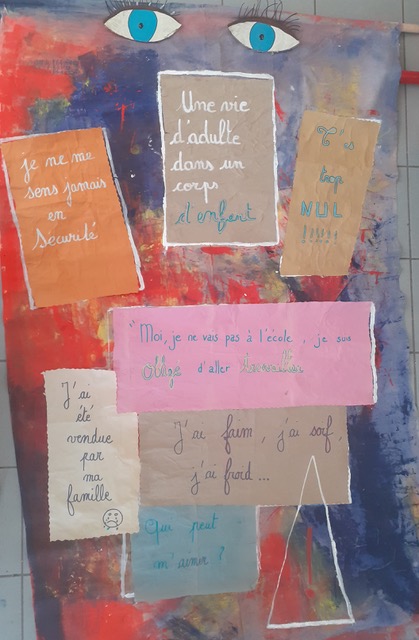 Une vie
d'adulte
dans un
corps
d'enfant
je ne me
sens jamais
en
sécurité
T'es
trop
NUL
!!!!!!
"Moi, je ne vais pas à l'école, je suis
oblige d'aller travailler
J'ai
été
vendue
par
ma
famille
J'ai faim, j'ai soif,
j'ai froid...
Qui peut
m'aimer ?